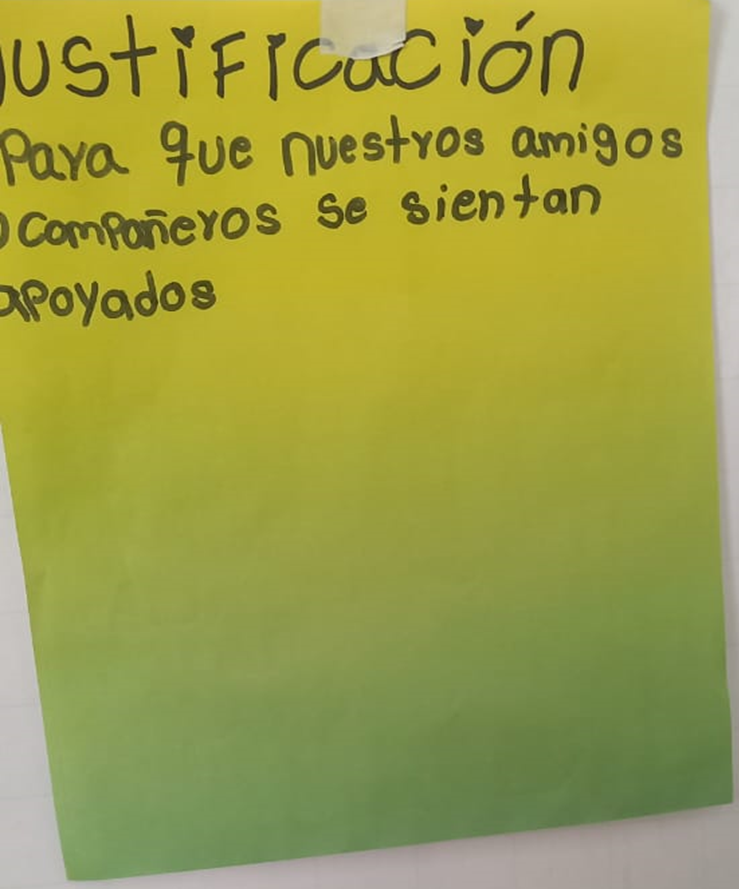 Justificación
Para que nuestros amigos
o compañeros se sientan
apoyados